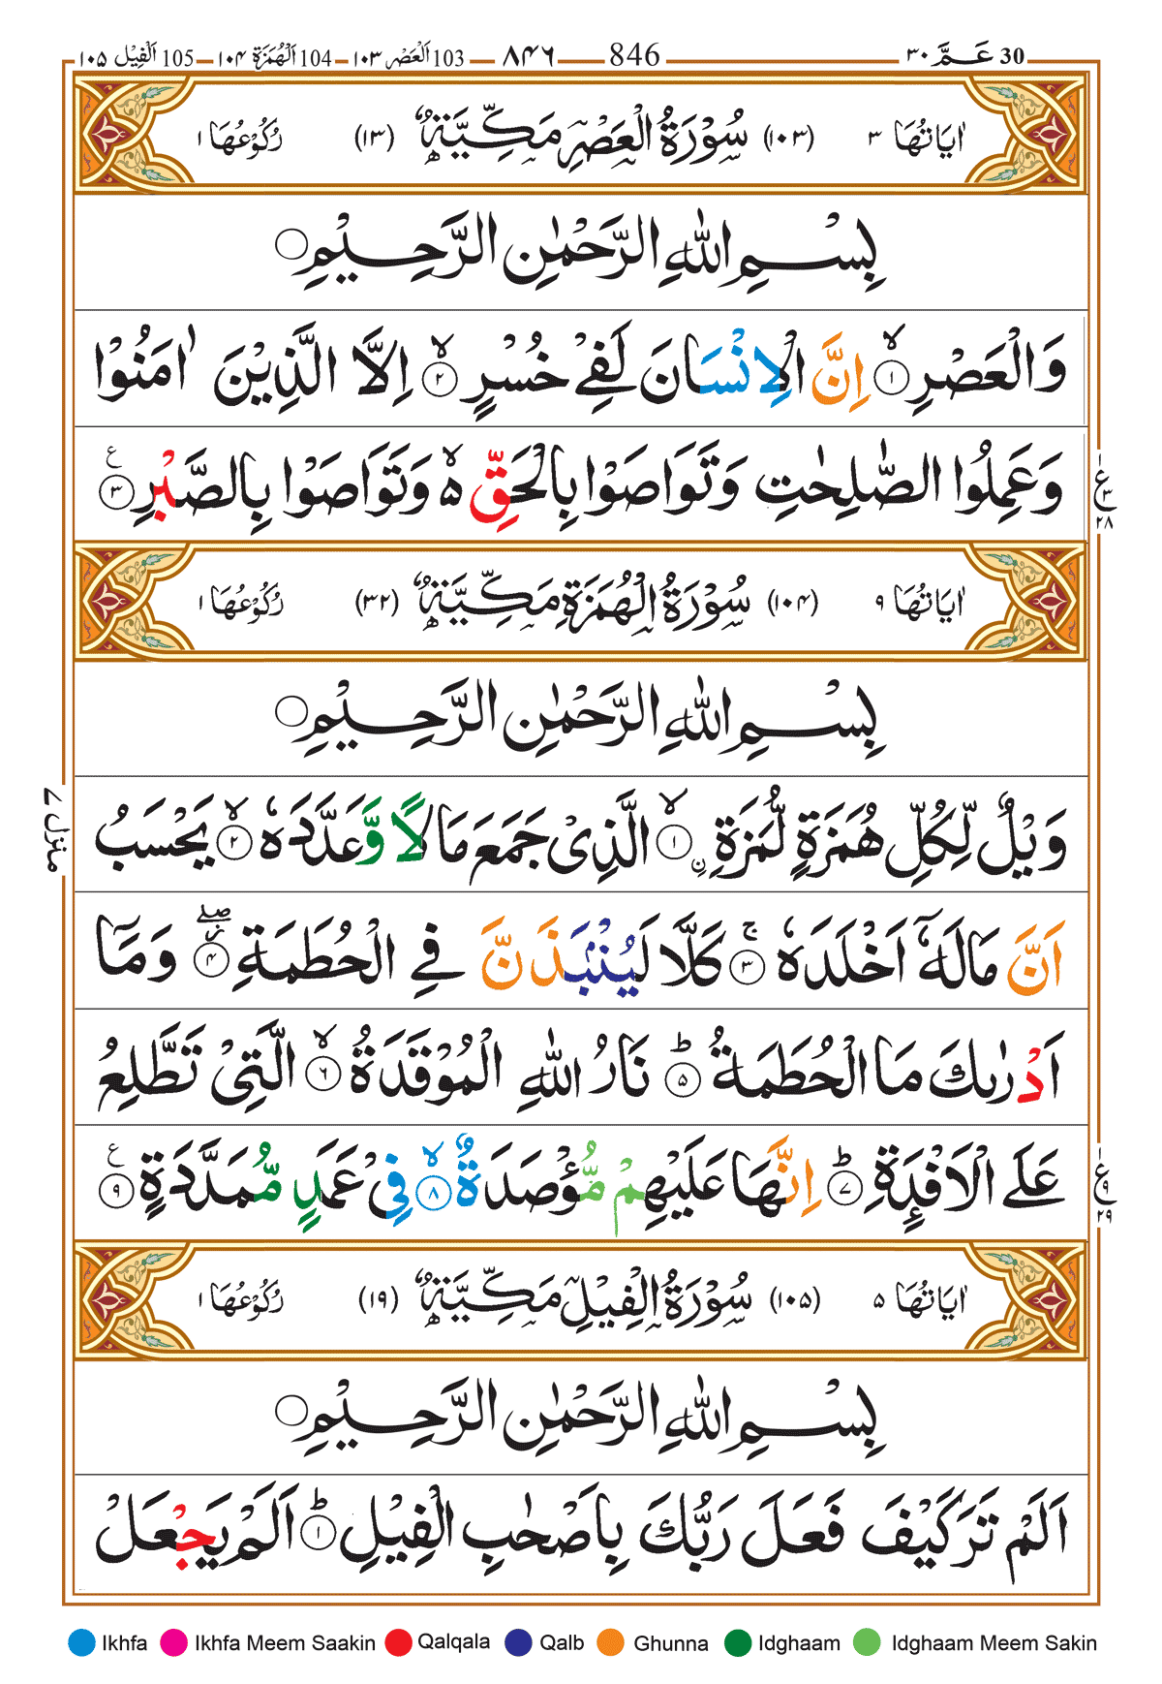 30 عَـمَّ ٣٠ — 846 — ٨٤٦ — 103 اَلْعَصْر ١٠٣ — 104 اَلْهُمَزَة ١٠٤ — 105 اَلْفِيْل ١٠٥
اٰيَاتُهَا ٣ (١٠٣) سُوْرَةُ الْعَصْرِ مَكِّيَّةٌ (١٣) رُكُوْعُهَا ١
بِسْمِ اللّٰهِ الرَّحْمٰنِ الرَّحِيْمِ
وَالْعَصْرِ ۙ﴿١﴾ اِنَّ الْاِنْسَانَ لَفِيْ خُسْرٍ ۙ﴿٢﴾ اِلَّا الَّذِيْنَ اٰمَنُوْا
وَعَمِلُوا الصّٰلِحٰتِ وَتَوَاصَوْا بِالْحَقِّ ۙ۬ وَتَوَاصَوْا بِالصَّبْرِ ﴿٣﴾
ع ٣ ٢٨
اٰيَاتُهَا ٩ (١٠٤) سُوْرَةُ الْهُمَزَةِ مَكِّيَّةٌ (٣٢) رُكُوْعُهَا ١
بِسْمِ اللّٰهِ الرَّحْمٰنِ الرَّحِيْمِ
منزل ٧
وَيْلٌ لِّكُلِّ هُمَزَةٍ لُّمَزَةِ ۙ﴿١﴾ ن الَّذِيْ جَمَعَ مَالًا وَّعَدَّدَهٗ ۙ﴿٢﴾ يَحْسَبُ
اَنَّ مَالَهٗٓ اَخْلَدَهٗ ۚ﴿٣﴾ كَلَّا لَيُنْۢبَذَنَّ فِي الْحُطَمَةِ ۖ﴿٤﴾ وَمَآ
اَدْرٰىكَ مَا الْحُطَمَةُ ؕ﴿٥﴾ نَارُ اللّٰهِ الْمُوْقَدَةُ ۙ﴿٦﴾ الَّتِيْ تَطَّلِعُ
عَلَى الْاَفْـِٕدَةِ ؕ﴿٧﴾ اِنَّهَا عَلَيْهِمْ مُّؤْصَدَةٌ ۙ﴿٨﴾ فِيْ عَمَدٍ مُّمَدَّدَةٍ ﴿٩﴾
ع ٩ ٢٩
اٰيَاتُهَا ٥ (١٠٥) سُوْرَةُ الْفِيْلِ مَكِّيَّةٌ (١٩) رُكُوْعُهَا ١
بِسْمِ اللّٰهِ الرَّحْمٰنِ الرَّحِيْمِ
اَلَمْ تَرَ كَيْفَ فَعَلَ رَبُّكَ بِاَصْحٰبِ الْفِيْلِ ؕ﴿١﴾ اَلَمْ يَجْعَلْ
Ikhfa Ikhfa Meem Saakin Qalqala Qalb Ghunna Idghaam Idghaam Meem Sakin